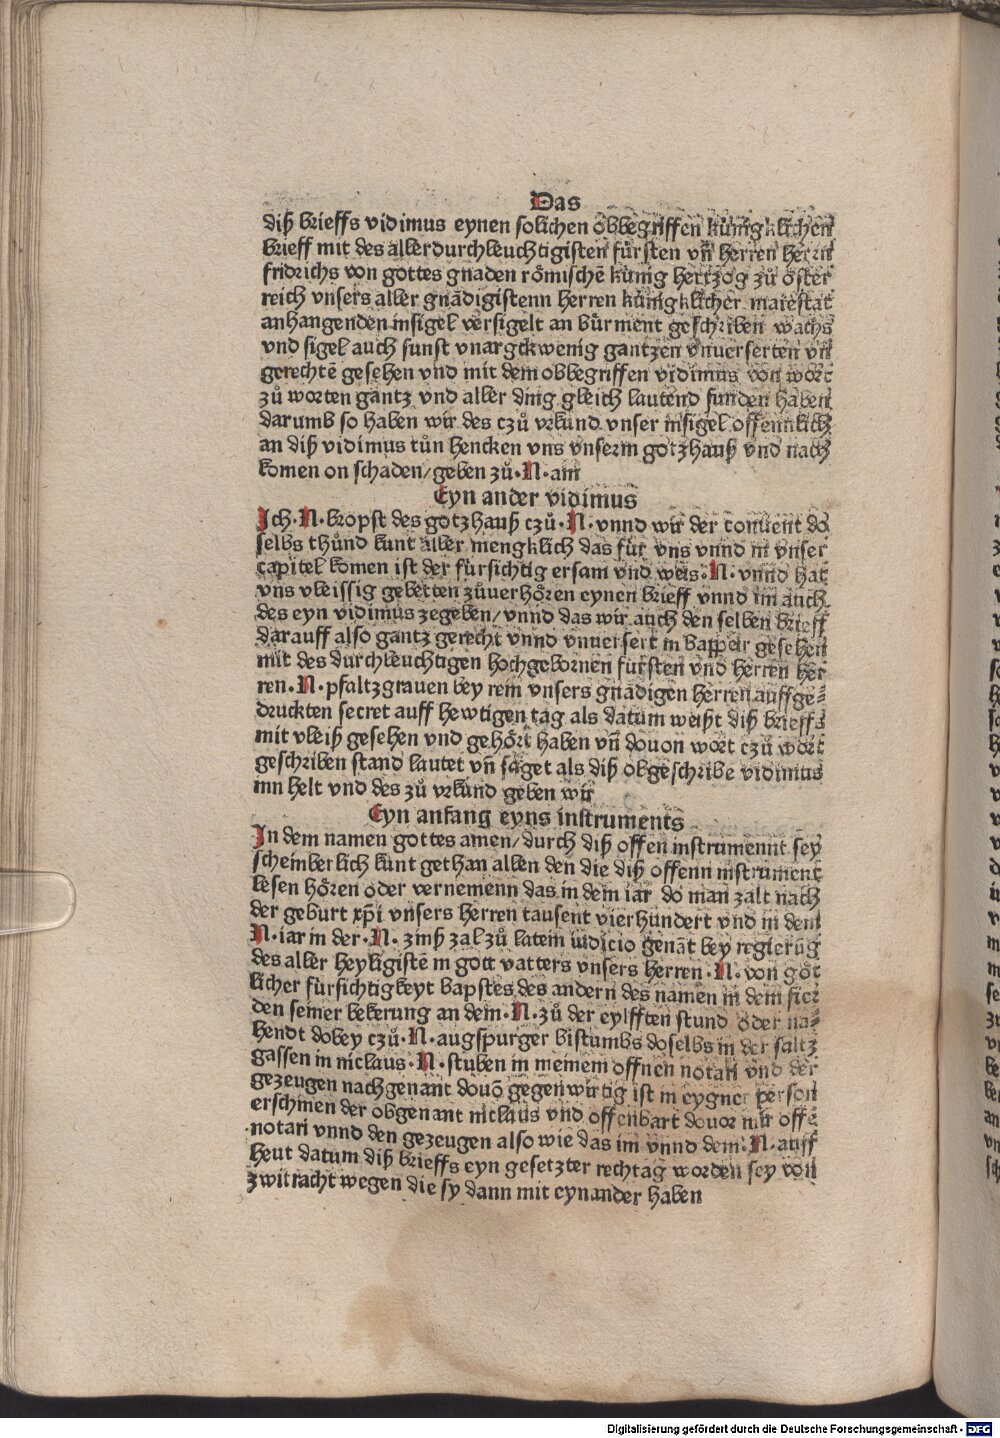 Das
diß brieffs vidimus eynen solichen obbegriffen künigklichen
brieff mit des allerdurchleuchtigisten fürsten vn̄ herren herrn
fridrichs von gottes gnaden römischē künig hertzog zů öster
reich vnsers aller gnādigistenn herren künigklicher maiestat
anhangenden insigel versigelt an bürment geschriben wachs
vnd sigel auch sunst vnargckwenig gantzen vnuerserten vn̄
gerechtē gesehen vnd mit dem obbegriffen vidimus von wort
zů worten gantz vnd aller ding gleich lautend funden haben
darumb so haben wir des czů vrkund vnser insigel offennlich
an diß vidimus tůn hencken vns vnserm gotzhauß vnd nach
komen on schaden/geben zů·N·am
Eyn ander vidimus
Ich·N·bropst des gotzhauß czů·N·vnnd wir der conuent do
selbs thůnd kunt aller mengklich das für vns vnnd in vnser
capitel komen ist der fürsichtig ersam vnd weis·N·vnnd hat
vns vleissig gebetten zůuerhören eynen brieff vnnd im auch
des eyn vidimus zegeben/vnnd das wir auch den selben brieff
darauff also gantz gerecht vnnd vnuersert in bappeir gesehen
mit des durchleuchtigen hochgebornen fürsten vnd herren her
ren·N·pfaltzgrauen bey rein vnsers gnādigen herren auffge⸗
druckten secret auff hewtigen tag als datum weißt diß brieffs
mit vleiß gesehen vnd gehört haben vn̄ douon wort czů wort
geschriben stand lautet vn̄ saget als diß obgeschribē vidimus
inn helt vnd des zů vrkund geben wir
Eyn anfang eyns instruments
In dem namen gottes amen/durch diß offen instrumennt sey
scheinberlich kunt gethan allen den die diß offenn instrument
lesen hören oder vernemenn das in dem iar do man zalt nach
der geburt xp̄i vnsers herren tausent vierhundert vnd in dem
N·iar in der·N·zinß zal zů latein iudicio genāt bey regierūg
des aller heyligistē in gott vatters vnsers herren·N·von göt
licher fürsichtigkeyt bapstes des andern des namen in dem fier
den seiner bekerung an dem·N·zů der eylfften stund oder na⸗
hendt dobey czů·N·augspurger bistumbs doselbs in der saltz
gassen in niclaus·N·stuben in meinem offnen notari vnd der
gezeugen nachgenant douō gegenwirtig ist in eygner person
erschinen der obgenant niclaus vnd offenbart douor mir offē
notari vnnd den gezeugen also wie das im vnnd dem·N·auff
heut datum diß brieffs eyn gesetzter rechtag worden sey von
zwitracht wegen die sy dann mit eynander haben
Digitalisierung gefördert durch die Deutsche Forschungsgemeinschaft - DFG